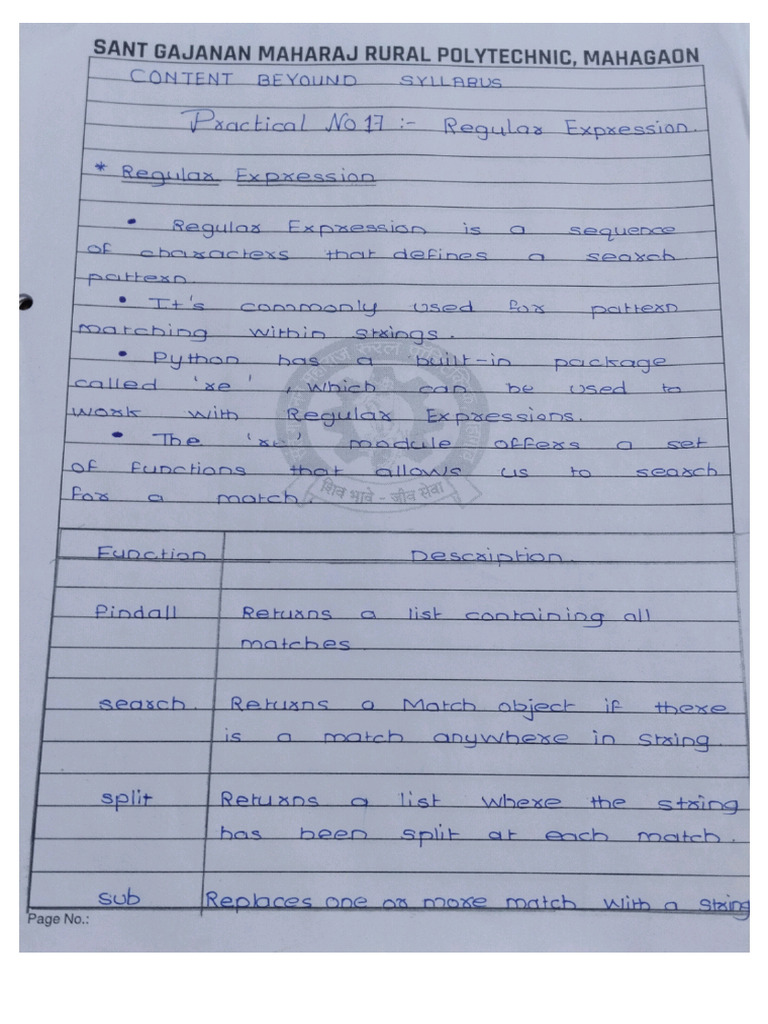 SANT GAJANAN MAHARAJ RURAL POLYTECHNIC, MAHAGAON
CONTENT BEYOUND SYLLABUS
Practical No 17 :- Regular Expression.
* Regular Expression
• Regular Expression is a sequence
of characters that defines a search
pattern.
• It's commonly used for pattern
matching within strings.
• Python has a built-in package
called 're', which can be used to
work with Regular Expressions.
• The 're' module offers a set
of functions that allows us to search
for a match.
शिव भावे - जीव सेवा
Function Description.
Findall Returns a list containing all
matches.
search. Returns a Match object if there
is a match anywhere in string.
split Returns a list where the string
has been split at each match.
sub Replaces one or more match with a string
Page No.: